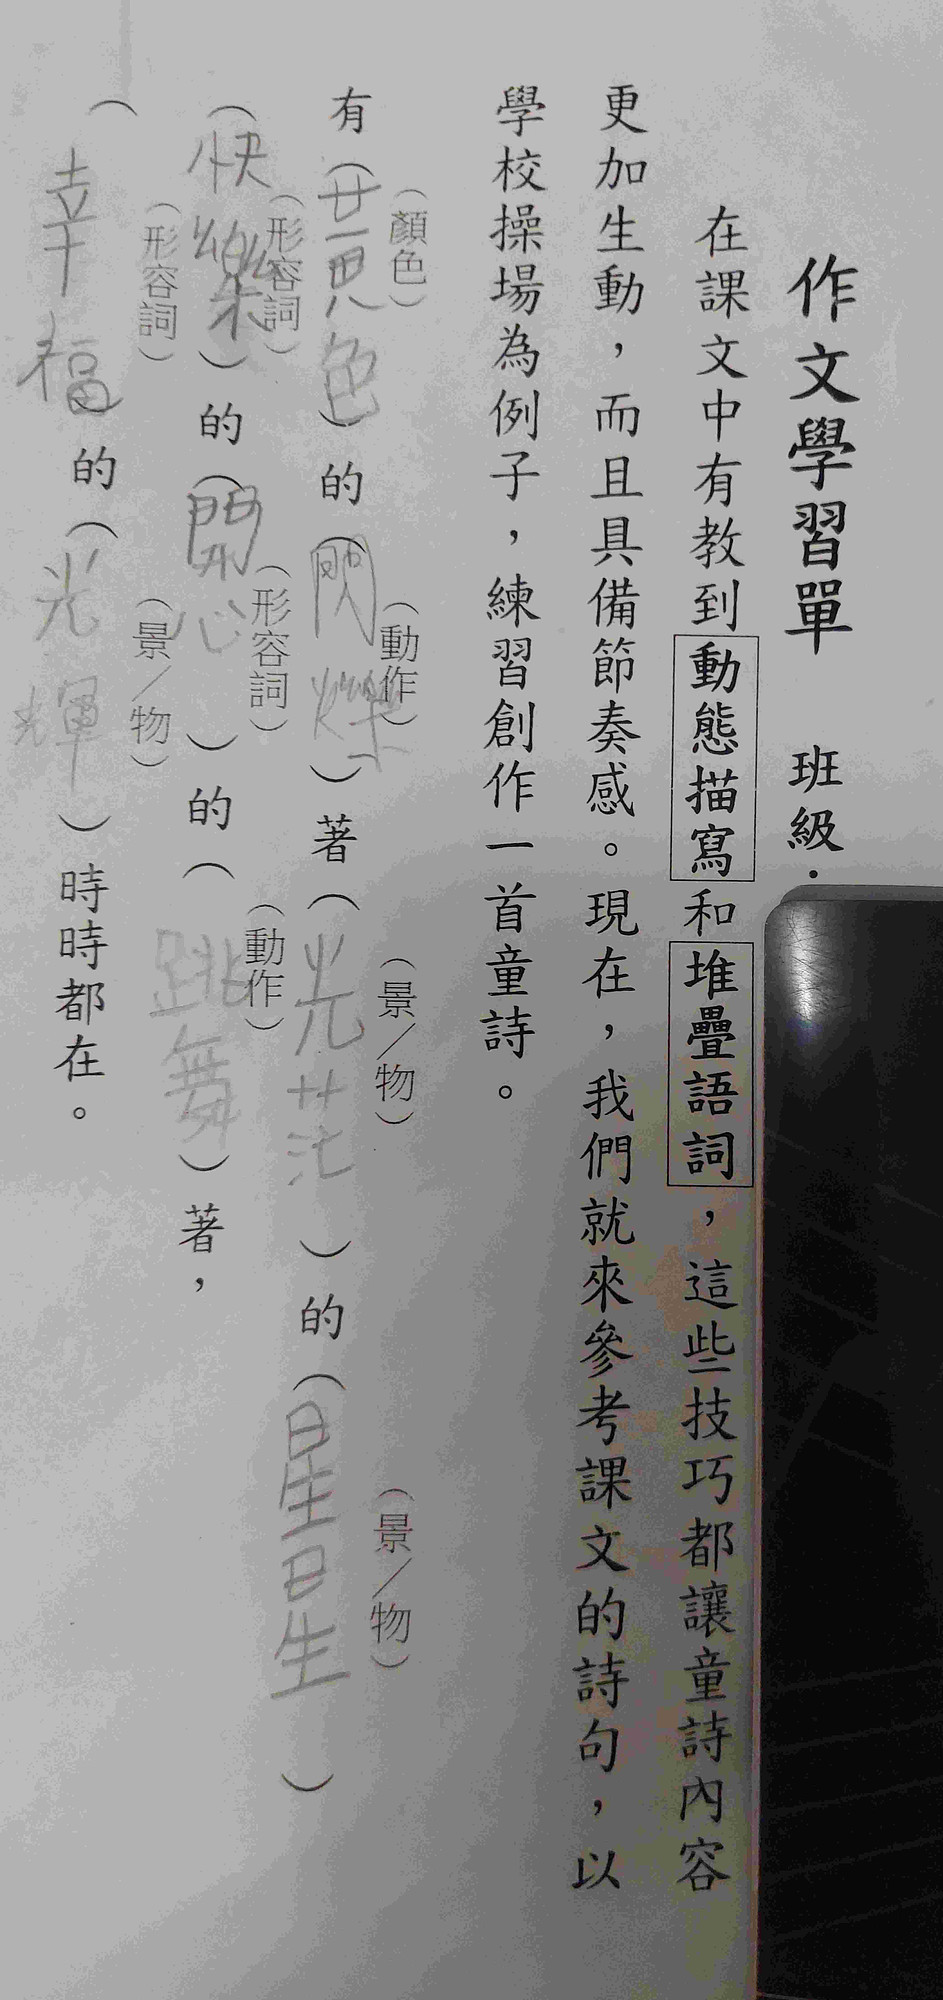 作文學習單 班級:
在課文中有教到動態描寫和堆疊語詞，這些技巧都讓童詩內容
更加生動，而且具備節奏感。現在，我們就來參考課文的詩句，以
學校操場為例子，練習創作一首童詩。
（顏色）（動作）（景／物）（景／物）
有（黃色）的（閃爍）著（光芒）的（星星）
（形容詞）（形容詞）（動作）
（快樂）的（開心）的（跳舞）著，
（形容詞）（景／物）
（幸福）的（光輝）時時都在。